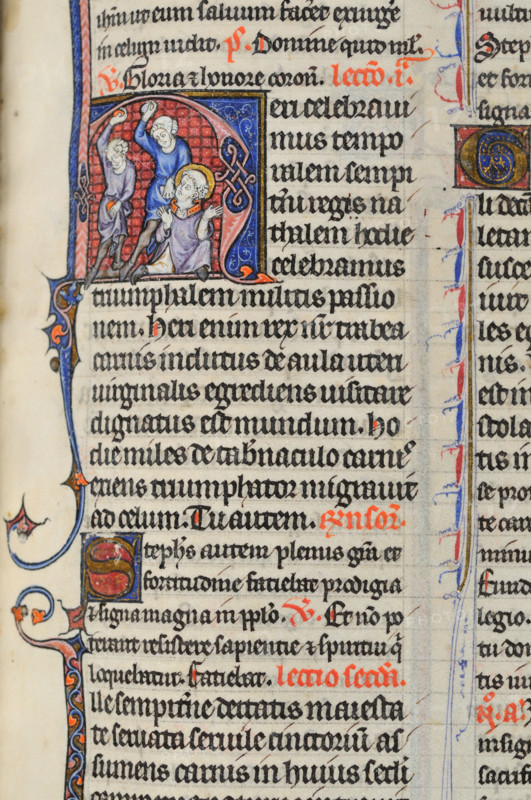 eum saluum facet exurge
in celum uidit. ps. Domine quid ml'.
V. Gloria & honore coron̄. lectō. i.
Heri celebraui
mus tempo
ralem sempi
tn̄i regis na
thalem hodie
celebramus
triumphalem militis passio
nem. Heri enim rex nr̄ trabea
carnis indutus de aula uteri
uirginalis egrediens uisitare
dignatus est mundum. ho
die miles de tab'naculo carnis
exiens triumphator migrauit
ad celum. Tu autem.
Steph's autem plenus gr̄a et
fortitudine faciebat prodigia
& signa magna in pplō. V. Et nō po
terant resistere sapientie & spiritui q̄
loquebatur. Faciebat. lectio secūn.
Ille sempitn̄e deitatis maiesta
te seruata seruile cinctorium as
sumens carnis in huius secli
Step
et for
signa
G
li
letan
susce
uiue
les
nis.
est in
stola
tis in
se pro
te car
minu
Euro
legio.
tu do
tis
insig
sacrif